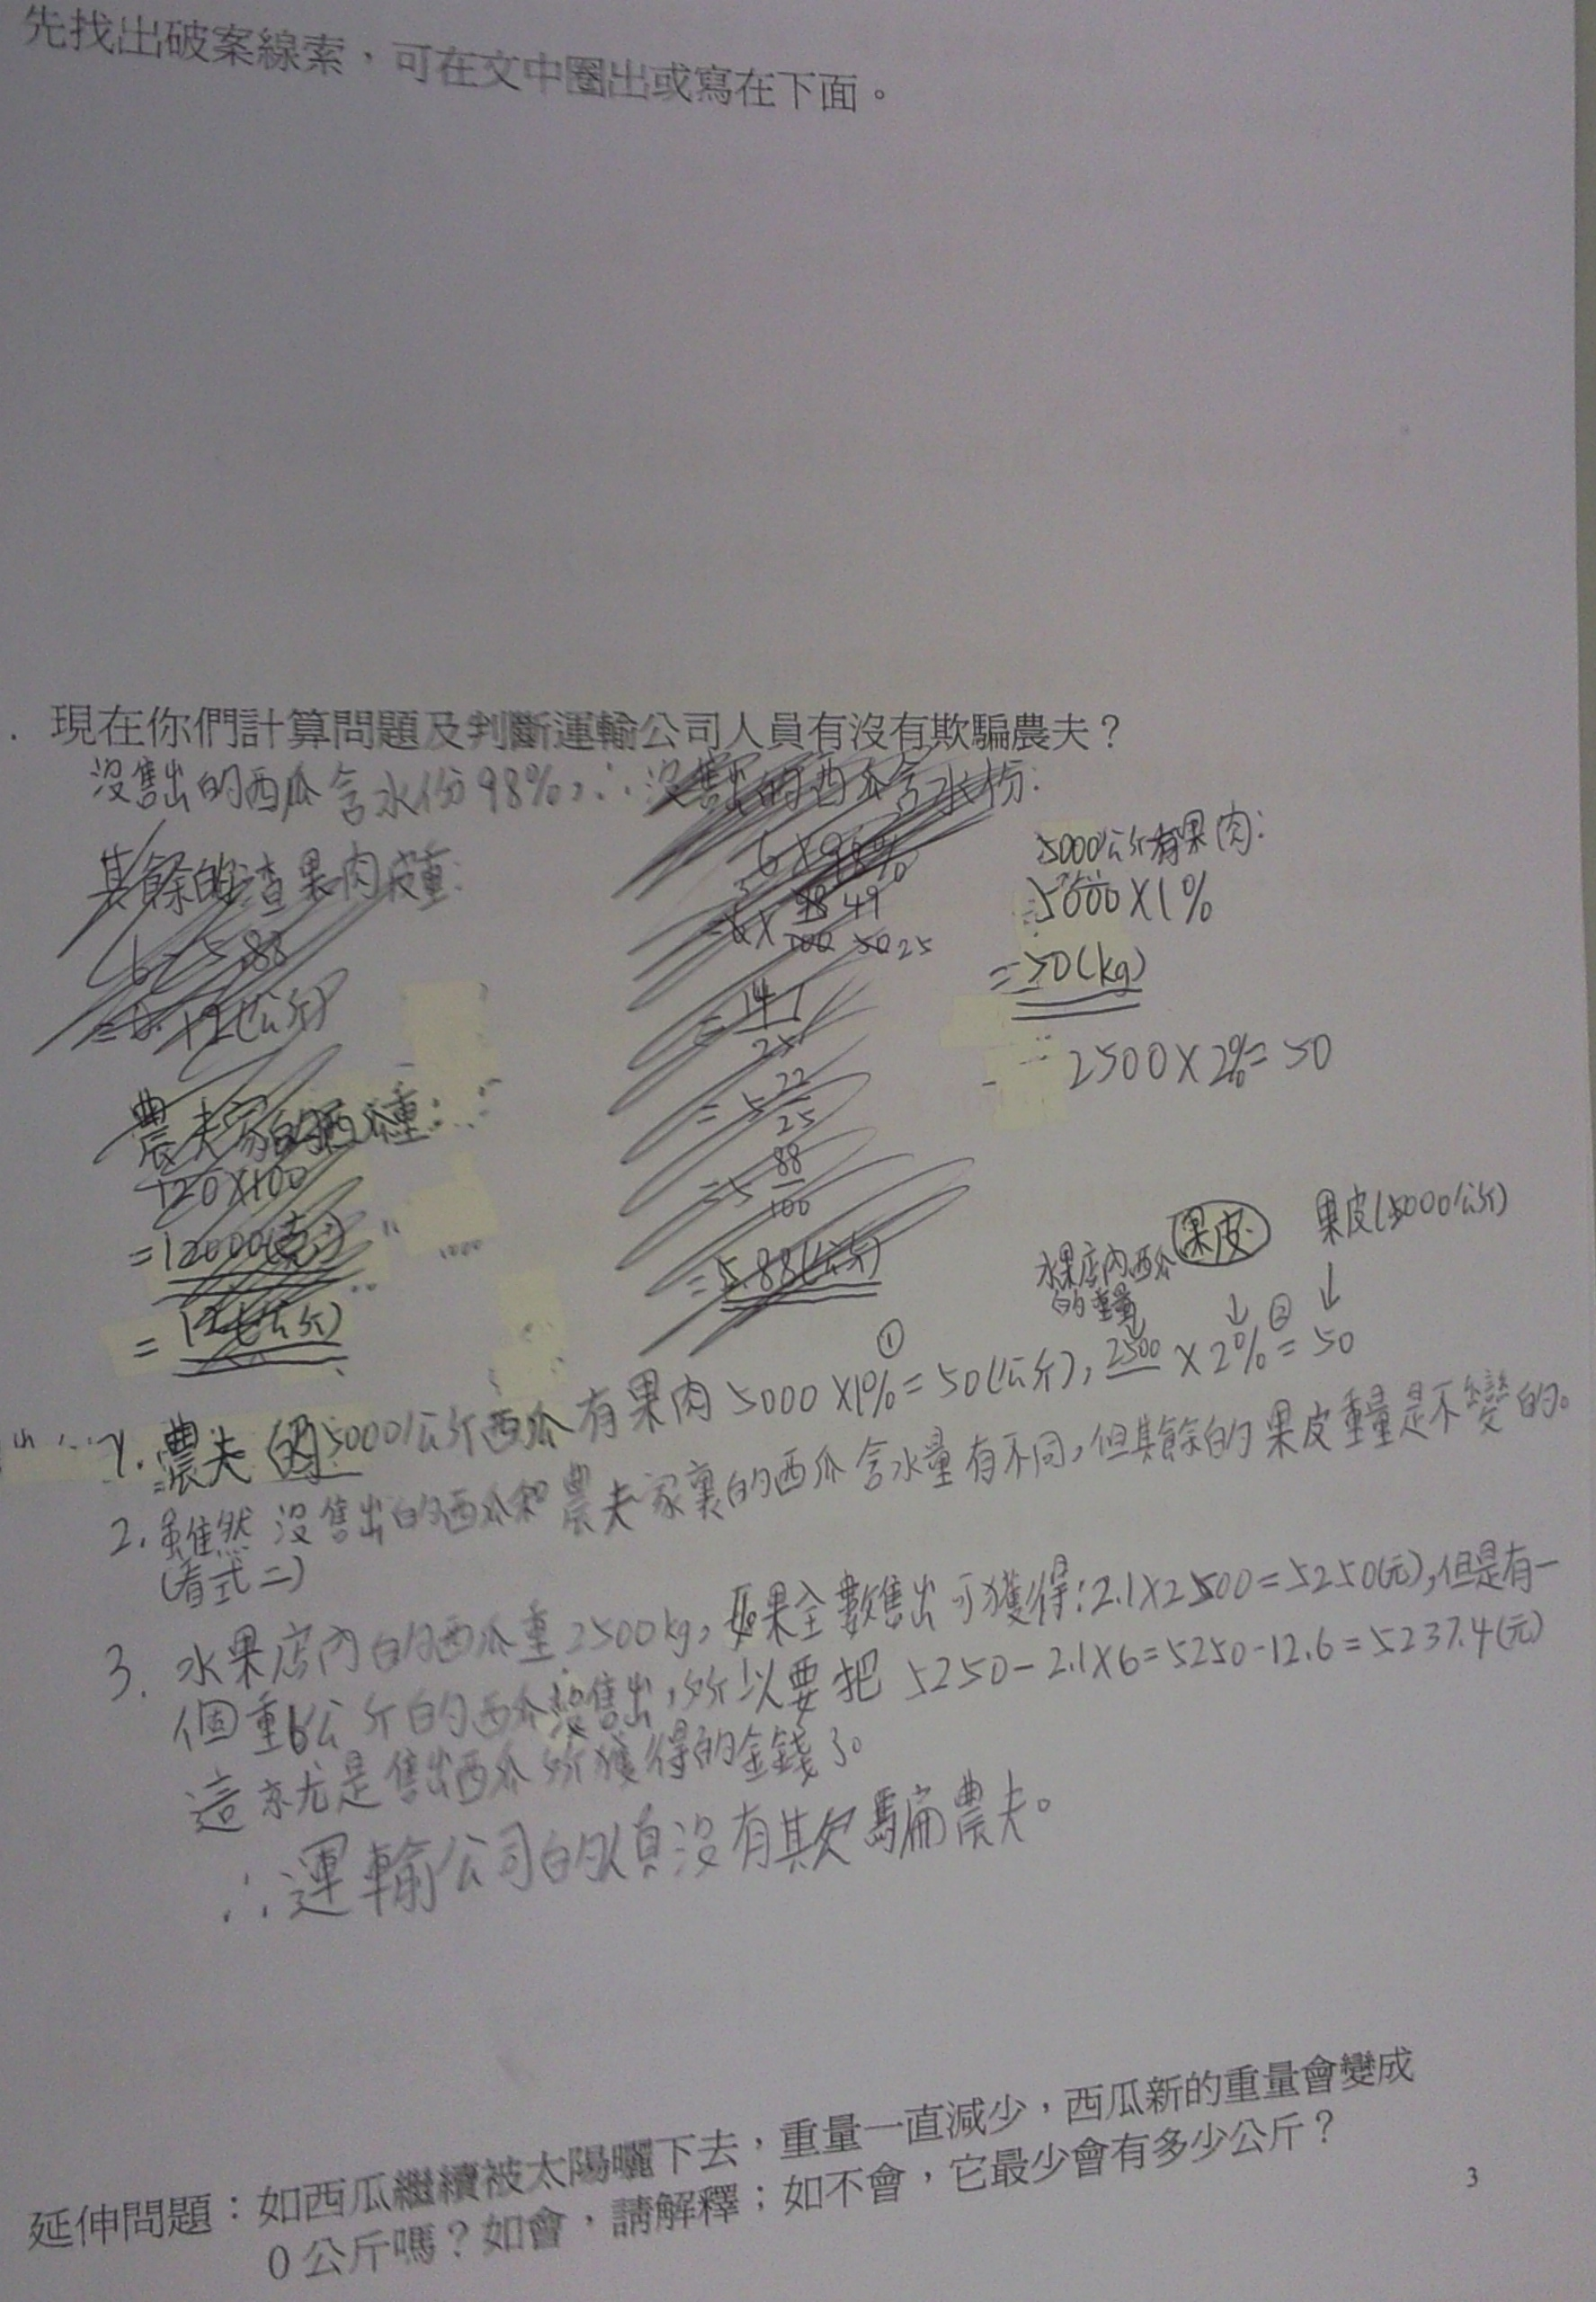 先找出破案線索，可在文中圈出或寫在下面。
現在你們計算問題及判斷運輸公司人員有沒有欺騙農夫？
沒售出的西瓜含水份98%，∴沒售出的西瓜含水份：
其餘的渣果肉皮重：
6-5.88
=0.12(公斤)
農夫家的西瓜重：
120×100
=12000(克)
=12(公斤)
6×98%
=6×
=5 22/25
=5 88/100
=5.88(公斤)
5000公斤有果肉：
=5000×1%
=50(kg)
2500×2%=50
水果店內西瓜的重量
果皮
果皮(5000公斤)
1. 農夫的5000公斤西瓜有果肉5000×1%=50(公斤)，2500×2%=50
① ②
2. 雖然沒售出的西瓜和農夫家裏的西瓜含水量有不同，但其餘的果皮重量是不變的。
(看式二)
3. 水果店內的西瓜重2500kg，如果全數售出可獲得：2.1×2500=5250(元)，但是有一
個重6公斤的西瓜沒售出，所以要把 5250-2.1×6=5250-12.6=5237.4(元)
這就是售出西瓜所獲得的金錢了。
∴運輸公司的人員沒有欺騙農夫。
延伸問題：如西瓜繼續被太陽曬下去，重量一直減少，西瓜新的重量會變成
0公斤嗎？如會，請解釋；如不會，它最少會有多少公斤？
3